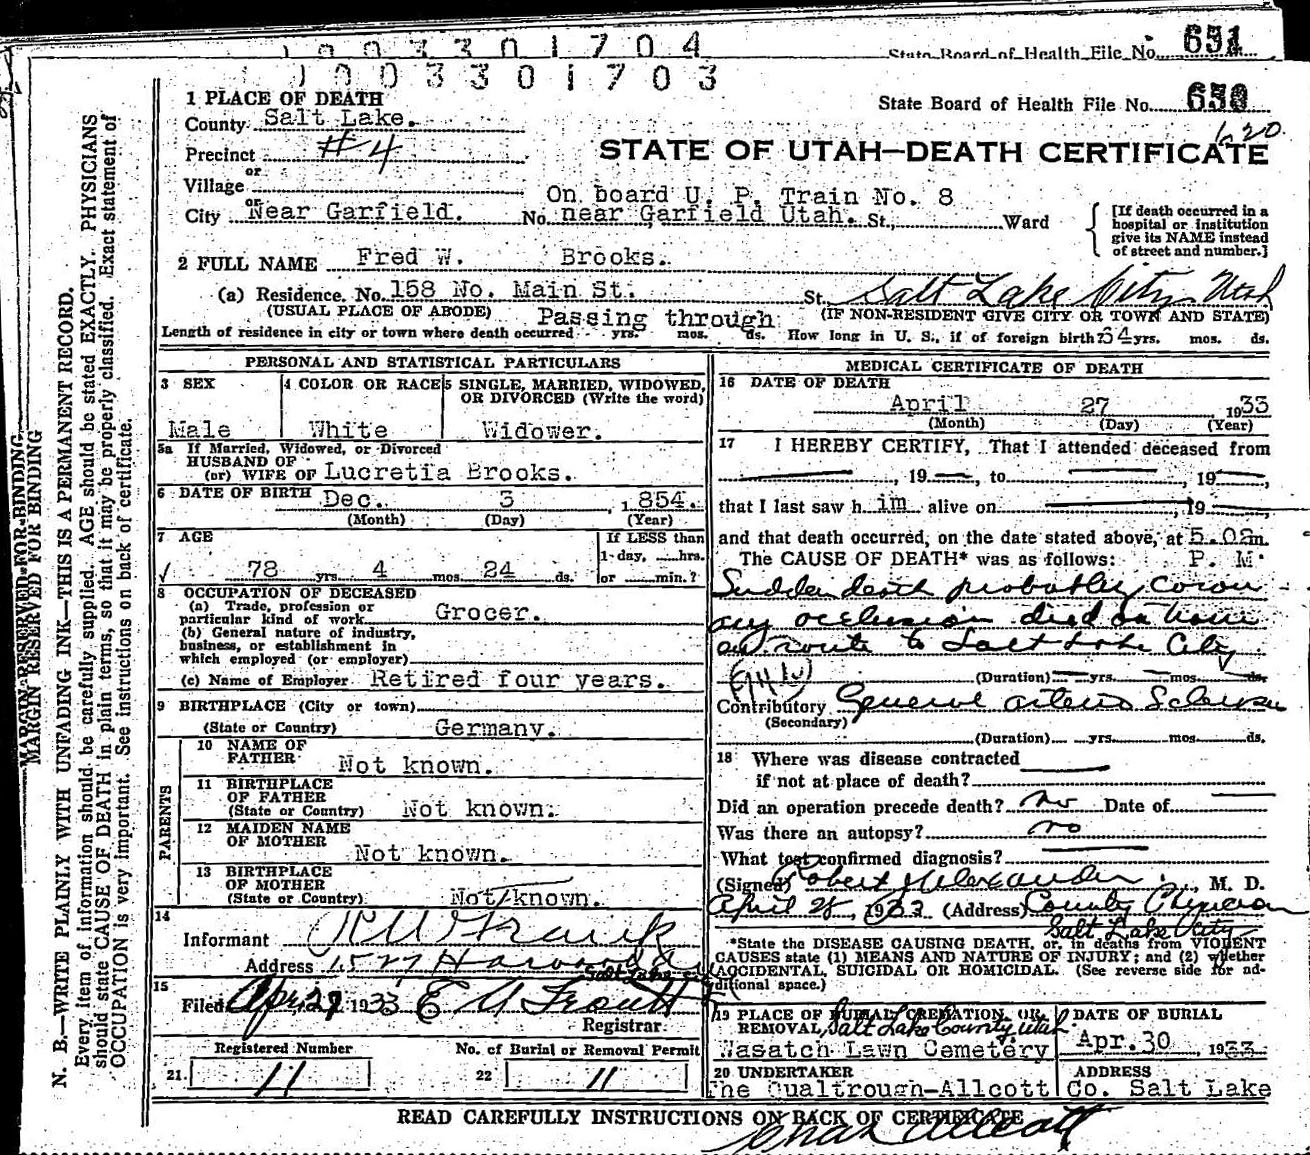 1 0 0 3 3 0 1 7 0 4
State Board of Health File No. 651
1 0 0 3 3 0 1 7 0 3
1 PLACE OF DEATH
State Board of Health File No. 650
620
County Salt Lake.
Precinct #4
STATE OF UTAH—DEATH CERTIFICATE
or
Village
On board U. P. Train No. 8
or
City Near Garfield. No. near Garfield Utah. St., Ward
[If death occurred in a hospital or institution give its NAME instead of street and number.]
2 FULL NAME Fred W. Brooks.
(a) Residence. No. 158 No. Main St. St. Salt Lake City Utah
(USUAL PLACE OF ABODE) (IF NON-RESIDENT GIVE CITY OR TOWN AND STATE)
Passing through
Length of residence in city or town where death occurred yrs. mos. ds. How long in U. S., if of foreign birth? 64 yrs. mos. ds.
PERSONAL AND STATISTICAL PARTICULARS
3 SEX
Male
4 COLOR OR RACE
White
5 SINGLE, MARRIED, WIDOWED, OR DIVORCED (Write the word)
Widower.
5a If Married, Widowed, or Divorced
HUSBAND OF
(or) WIFE OF Lucretia Brooks.
6 DATE OF BIRTH Dec. 3, 1854.
(Month) (Day) (Year)
7 AGE
If LESS than
1 day, hrs.
78 yrs. 4 mos. 24 ds. or min.?
8 OCCUPATION OF DECEASED
(a) Trade, profession or
particular kind of work Grocer.
(b) General nature of industry,
business, or establishment in
which employed (or employer)
(c) Name of Employer Retired four years.
9 BIRTHPLACE (City or town)
(State or Country) Germany.
PARENTS
10 NAME OF
FATHER Not known.
11 BIRTHPLACE
OF FATHER
(State or Country) Not known.
12 MAIDEN NAME
OF MOTHER
Not known.
13 BIRTHPLACE
OF MOTHER
(State or Country) Not known.
14
Informant
Address
Salt Lake
15
Filed Apr. 29 1933
Registrar
Registered Number
21 11
No. of Burial or Removal Permit
22 11
MEDICAL CERTIFICATE OF DEATH
16 DATE OF DEATH
April 27 1933
(Month) (Day) (Year)
17 I HEREBY CERTIFY, That I attended deceased from
, 19 , to , 19 ,
that I last saw h im alive on , 19 ,
and that death occurred, on the date stated above, at 5.02 m.
The CAUSE OF DEATH* was as follows: P. M.
Sudden death probably coron
ary occlusion died on train
en route to Salt Lake City
(Duration) yrs. mos. ds.
Contributory General arterio Sclerosis
(Secondary)
(Duration) yrs. mos. ds.
18 Where was disease contracted
if not at place of death?
Did an operation precede death? no Date of
Was there an autopsy? no
What test confirmed diagnosis?
(Signed) Robert Alexander, M. D.
April 28, 1933 (Address) County Physician
Salt Lake City
*State the DISEASE CAUSING DEATH, or, in deaths from VIOLENT
CAUSES state (1) MEANS AND NATURE OF INJURY; and (2) whether
ACCIDENTAL, SUICIDAL OR HOMICIDAL. (See reverse side for ad-
ditional space.)
19 PLACE OF BURIAL, CREMATION, OR
REMOVAL, Salt Lake County, Utah
Wasatch Lawn Cemetery
DATE OF BURIAL
Apr. 30, 1933
20 UNDERTAKER
The Qualtrough-Allcott Co.
ADDRESS
Salt Lake
READ CAREFULLY INSTRUCTIONS ON BACK OF CERTIFICATE
Chas Allcott
MARGIN RESERVED FOR BINDING
MARGIN RESERVED FOR BINDING
N. B.—WRITE PLAINLY WITH UNFADING INK—THIS IS A PERMANENT RECORD.
Every item of information should be carefully supplied. AGE should be stated EXACTLY. PHYSICIANS
should state CAUSE OF DEATH in plain terms, so that it may be properly classified. Exact statement of
OCCUPATION is very important. See instructions on back of certificate.